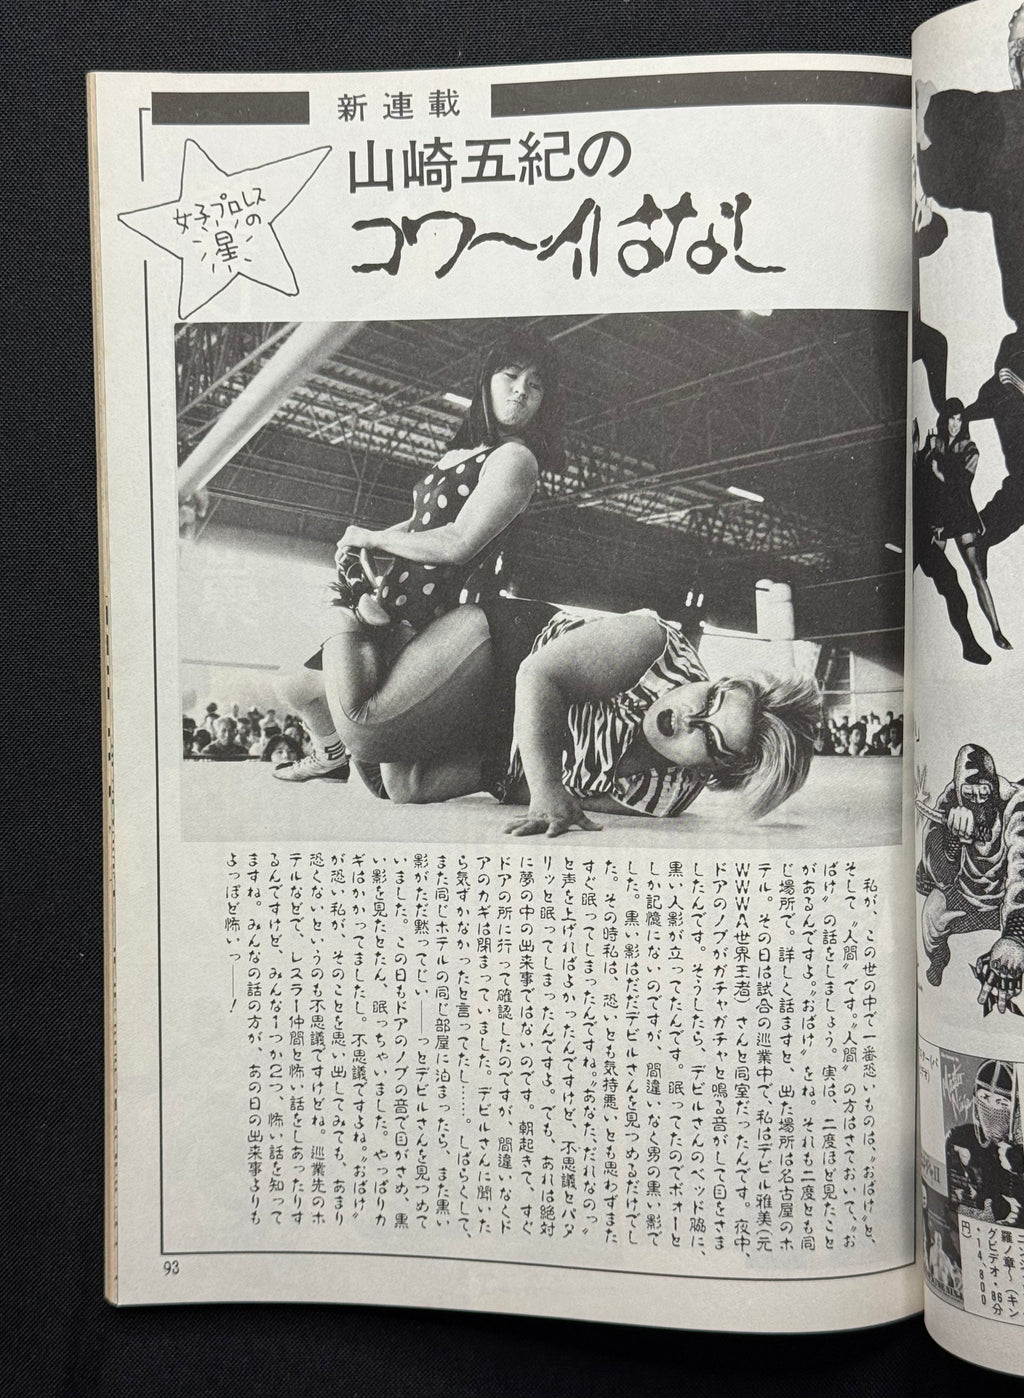 新連載
山崎五紀の
コワ〜イはなし
女子プロレス
の
星
私が、この世の中で一番恐いものは、〝おばけ〟と、
そして〝人間〟です。〝人間〟の方はさておいて、〝お
ばけ〟の話をしましょう。実は、二度ほど見たこと
があるんですよ。〝おばけ〟をね。それも二度とも同
じ場所で。詳しく話ますと、出た場所は名古屋のホ
テル。その日は試合の巡業中で、私はデビル雅美(元
WWWA世界王者)さんと同室だったんです。夜中、
ドアのノブがガチャガチャと鳴る音がして目をさま
したんです。そうしたら、デビルさんのベッド脇に、
黒い人影が立ってたんです。眠ってたのでボォーと
しか記憶にないのですが、間違いなく男の黒い影で
した。黒い影はただデビルさんを見つめるだけでし
た。その時私は、恐いとも気持悪いとも思わずまた
すぐ眠ってしまったんですね。〝あなた、だれなのっ〟
と声を上げればよかったんですけど、不思議とバタ
リッと眠ってしまったんですよ。でも、あれは絶対
に夢の中の出来事ではないのです。朝起きて、すぐ
ドアの所に行って確認したのですが、間違いなくド
アのカギは閉まっていました。デビルさんに聞いた
ら気ずかなかったと言ってたし……。しばらくして、
また同じホテルの同じ部屋に泊まったら、また黒い
影がただ黙ってじい——っとデビルさんを見つめて
いました。この日もドアのノブの音で目がさめ、黒
い影を見たとたん、眠っちゃいました。やっぱりカ
ギはかかってましたし。不思議ですよね。〝おばけ〟
が恐い私が、そのことを思い出してみても、あまり
恐くないというのも不思議ですけどね。巡業先のホ
テルなどで、レスラー仲間と怖い話をしあったりす
るんですけど、みんな1つか2つ、怖い話を知って
ますね。みんなの話の方が、あの日の出来事よりも
よっぽど怖いっ——！
93
羅ノ章〜(キン
グビデオ・86分
・14、800
円)